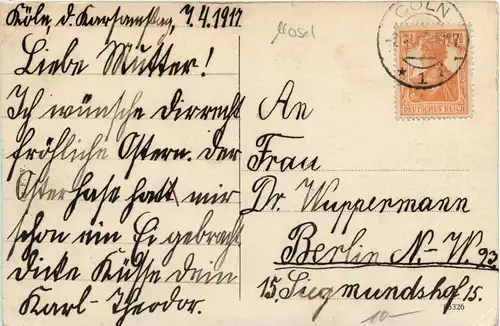 Köln, d. Karsamstag, 7.4.1917
Liebe Mutter!
Ich wünsche dir recht
fröhliche Ostern. Der
Osterhase hatt mir
schon ein Ei gebracht
Dicke Küsse dein
Karl-Theodor.
Mosel
CÖLN
1
DEUTSCHES REICH
An
Frau
Dr. Wuppermann
Berlin N.-W. 23
15, Siegmundshof 15.
10-